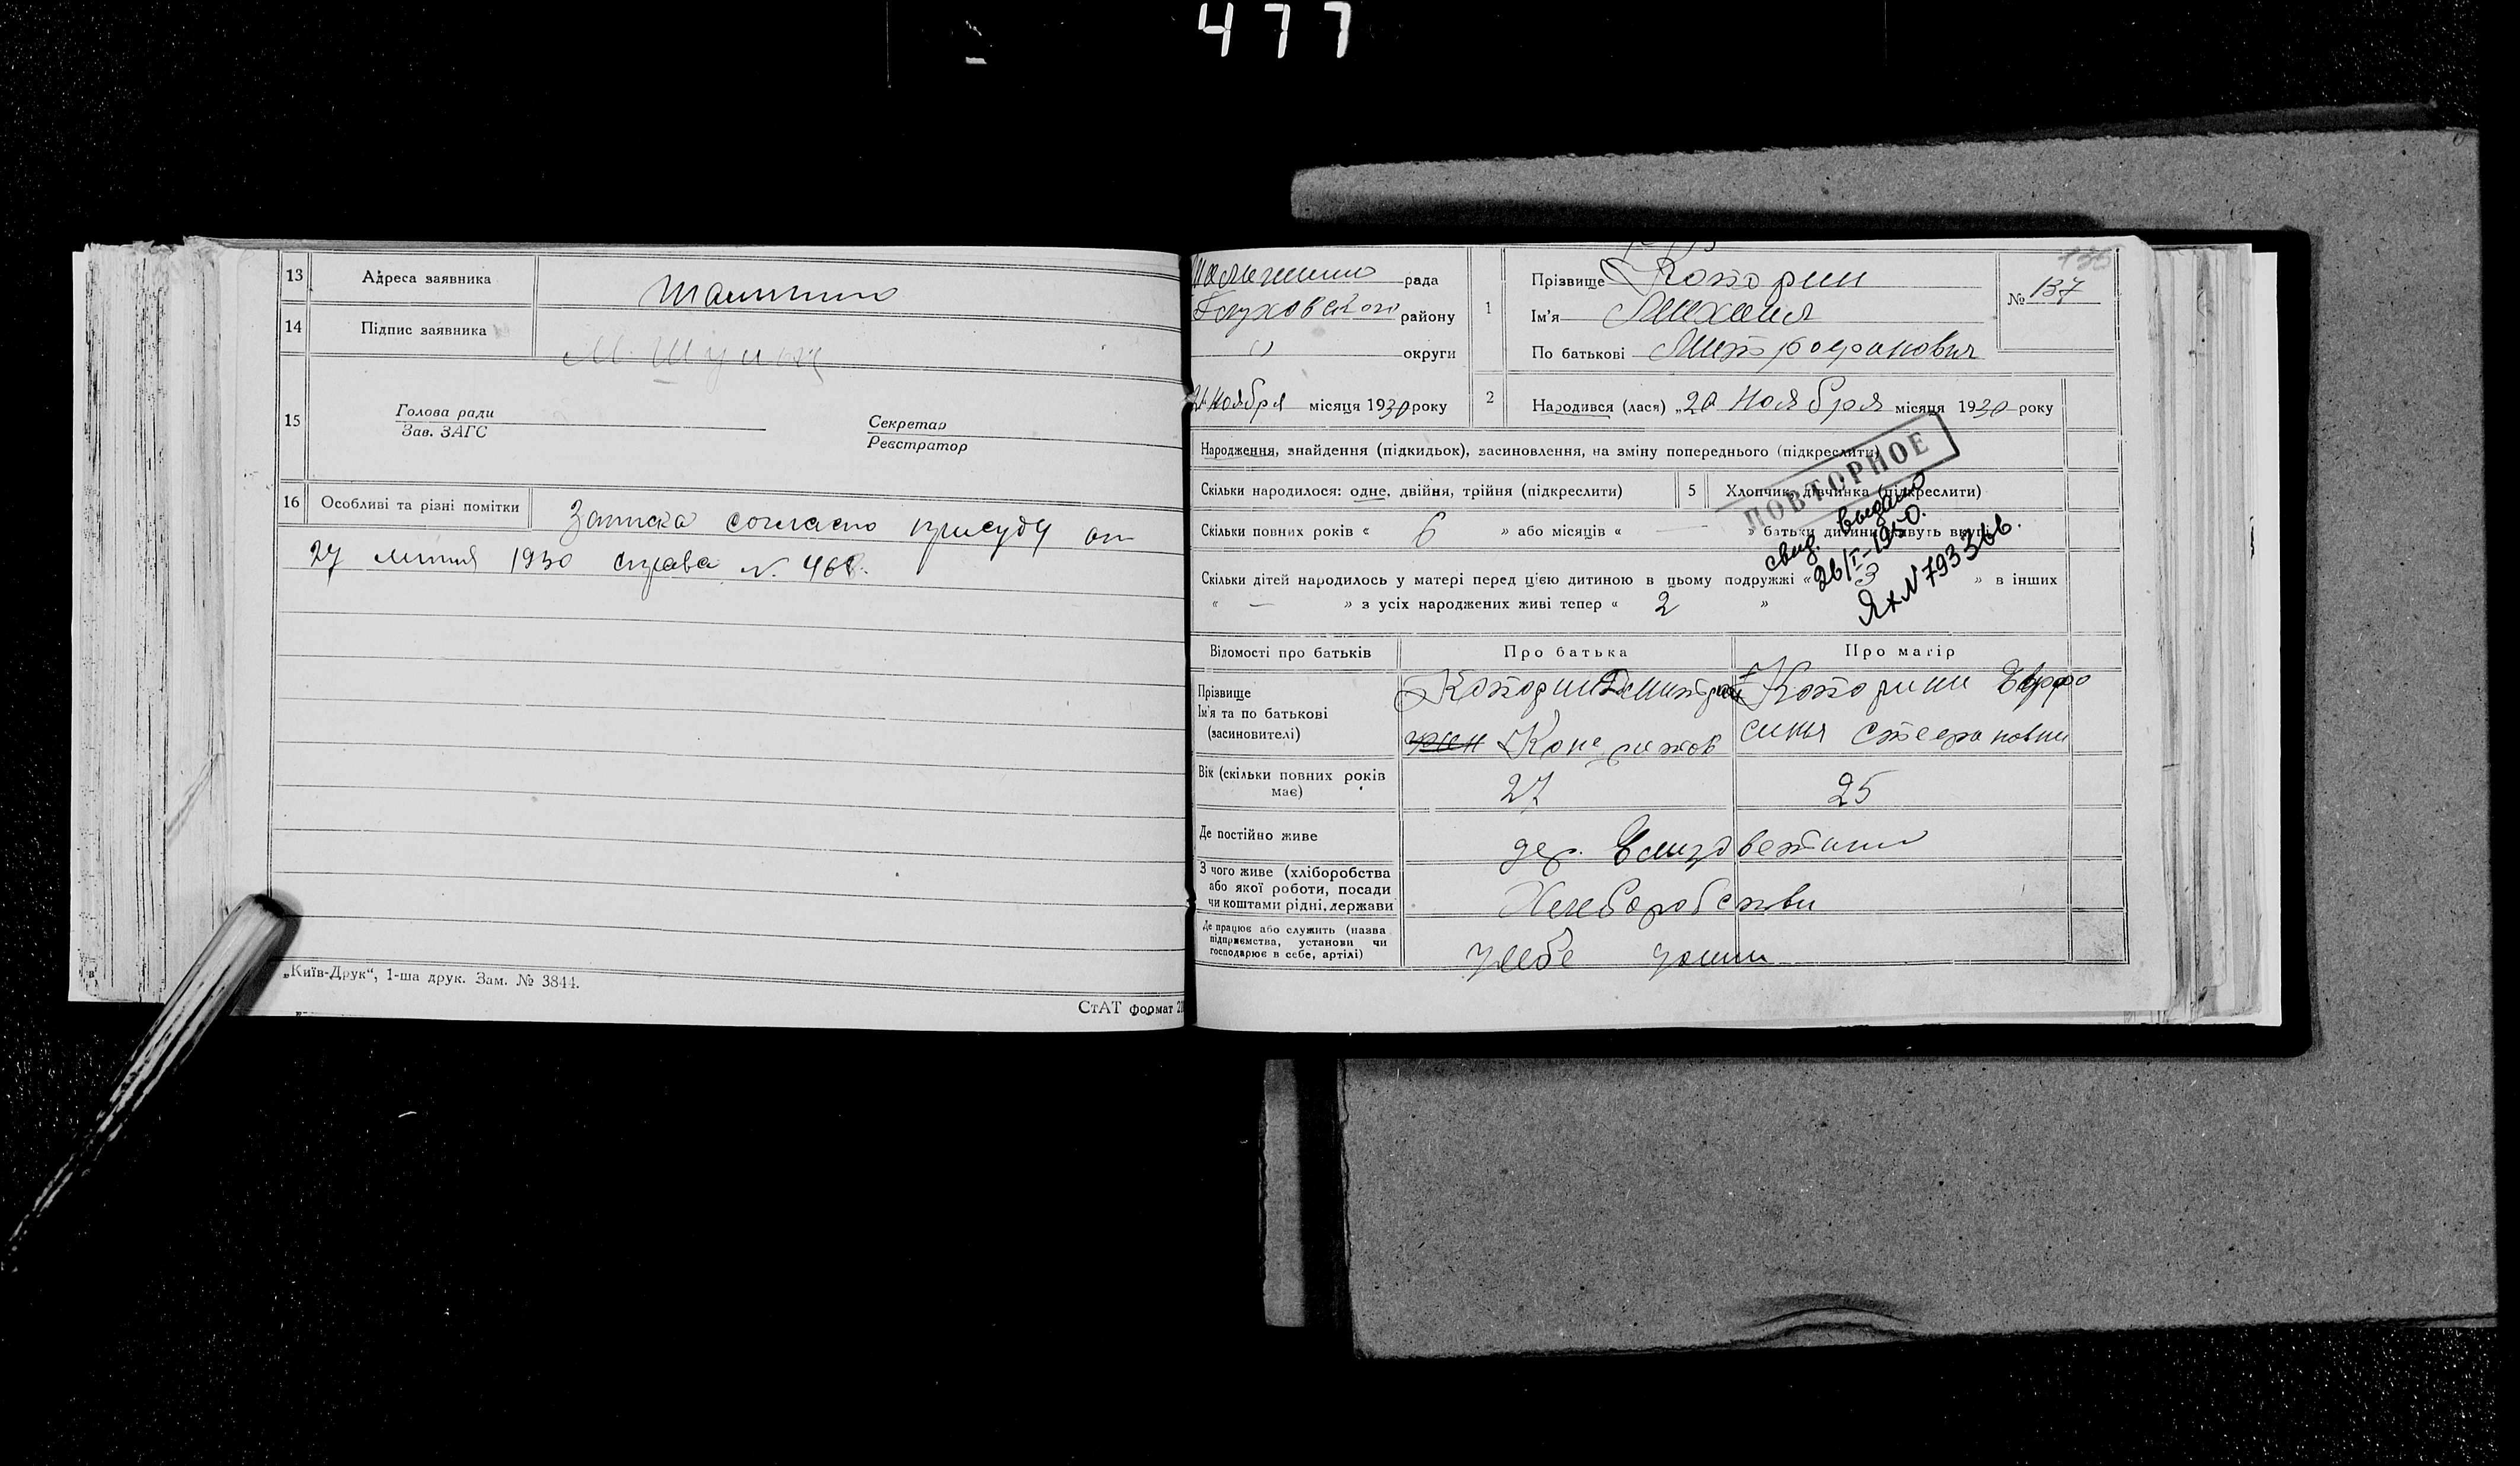 477
13 Адреса заявника
14 Підпис заявника
15 Голова ради
Зав. ЗАГС
Секретар
Реєстратор
16 Особливі та різні помітки Записка согласно присуду от
27 липня 1930 справа N. 468.
„Київ-Друк“, 1-ша друк. Зам. № 3844.
СтАТ формат
рада
Глуховского району
округи
21 Ноября місяця 1930 року
135
№ 137
1 Прізвище Которин
Ім'я Михаил
По батькові Митрофанович
2 Народився (лася) „20 Ноября місяця 1930 року
Народження, знайдення (підкидьок), засиновлення, на зміну попереднього (підкреслити)
ПОВТОРНОЕ
Скільки народилося: одне, двійня, трійня (підкреслити)
5 Хлопчик, дівчинка (підкреслити)
Скільки повних років « 6 » або місяців « — » батьки дитини живуть вкупі
свид. выдано
26/I-1950.
Ях N 793366.
Скільки дітей народилось у матері перед цією дитиною в цьому подружжі « 3 » в інших
« — » з усіх народжених живі тепер « 2 »
Відомості про батьків
Про батька
Про матір
Прізвище
Ім'я та по батькові
(засновителі)
Которин
Которин Евфро
синья Стефановна
Вік (скільки повних років
має)
27
25
Де постійно живе
дер.
З чого живе (хліборобства
або якої роботи, посади
чи коштами рідні, держави
Хлеборобство
Де працює або служить (назва
підприємства, установи чи
господарює в себе, артілі)